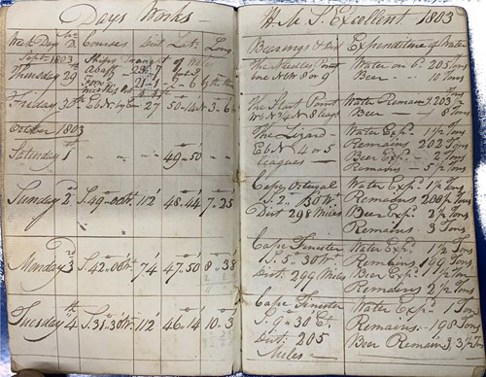 Days Works —
Week Days D Courses Dist Lat: Long
Septr 1803
Thursday 29th
Friday 30th EbN by E — 27 50-14 N 3-6
October 1803
Saturday 1st " " " 49-50
Sunday 2d S. 49-00 Wt 112 48-44 7-25
Monday 3d S. 42-00 Wt 74 47-50 8-38
Tuesday 4th S. 31-30 Wt 112 46-14 10-3
H.M.S. Excellent 1803
Bearings & Dist Expenditure of Water
The Needles Point Water on bd 205 Tons
8 or 9 Beer — 10 Tons
The Start Point Water Remains 203
Beer — 8 Tons
The Lizard — Water Exp. 1 1/2 Tons
EbN 4 or 5 Remains 202 Tons
leagues — Beer Exp. — 2 Tons
Remains — 5 1/2 Tons
Cape Ortugal Water Exp. 1 1/2 Tons
S. 2. 30 Wt Remains 200 1/2 Tons
Dist 298 Miles Beer Exp. 2 1/2 Tons
Remains 3 Tons
Cape Finester Water Exp. 1 1/2 Tons
S. 5. 30 Wt Remains 199 Tons
Dist. 299 Miles Beer Exp. 1/2 Tons
Remains 2 1/2 Tons
Cape Finester Water Exp. 1 Ton
S. 9-30 Et. Remains. 198 Tons
Dist. 205 Beer Remains 3 1/2 Tons
Miles —